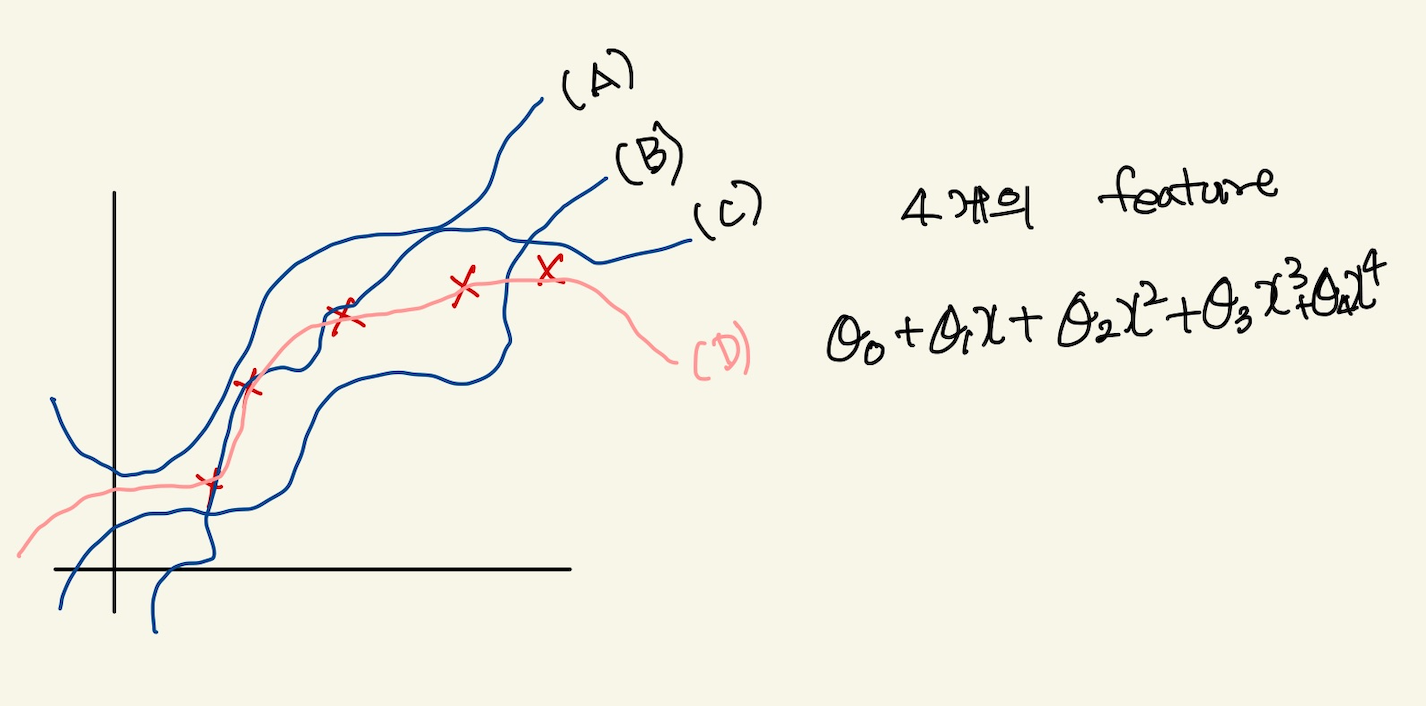 (A)
(B)
(C)
(D)
4개의 feature
θ₀+θ₁x+θ₂x²+θ₃x³+θ₄x⁴